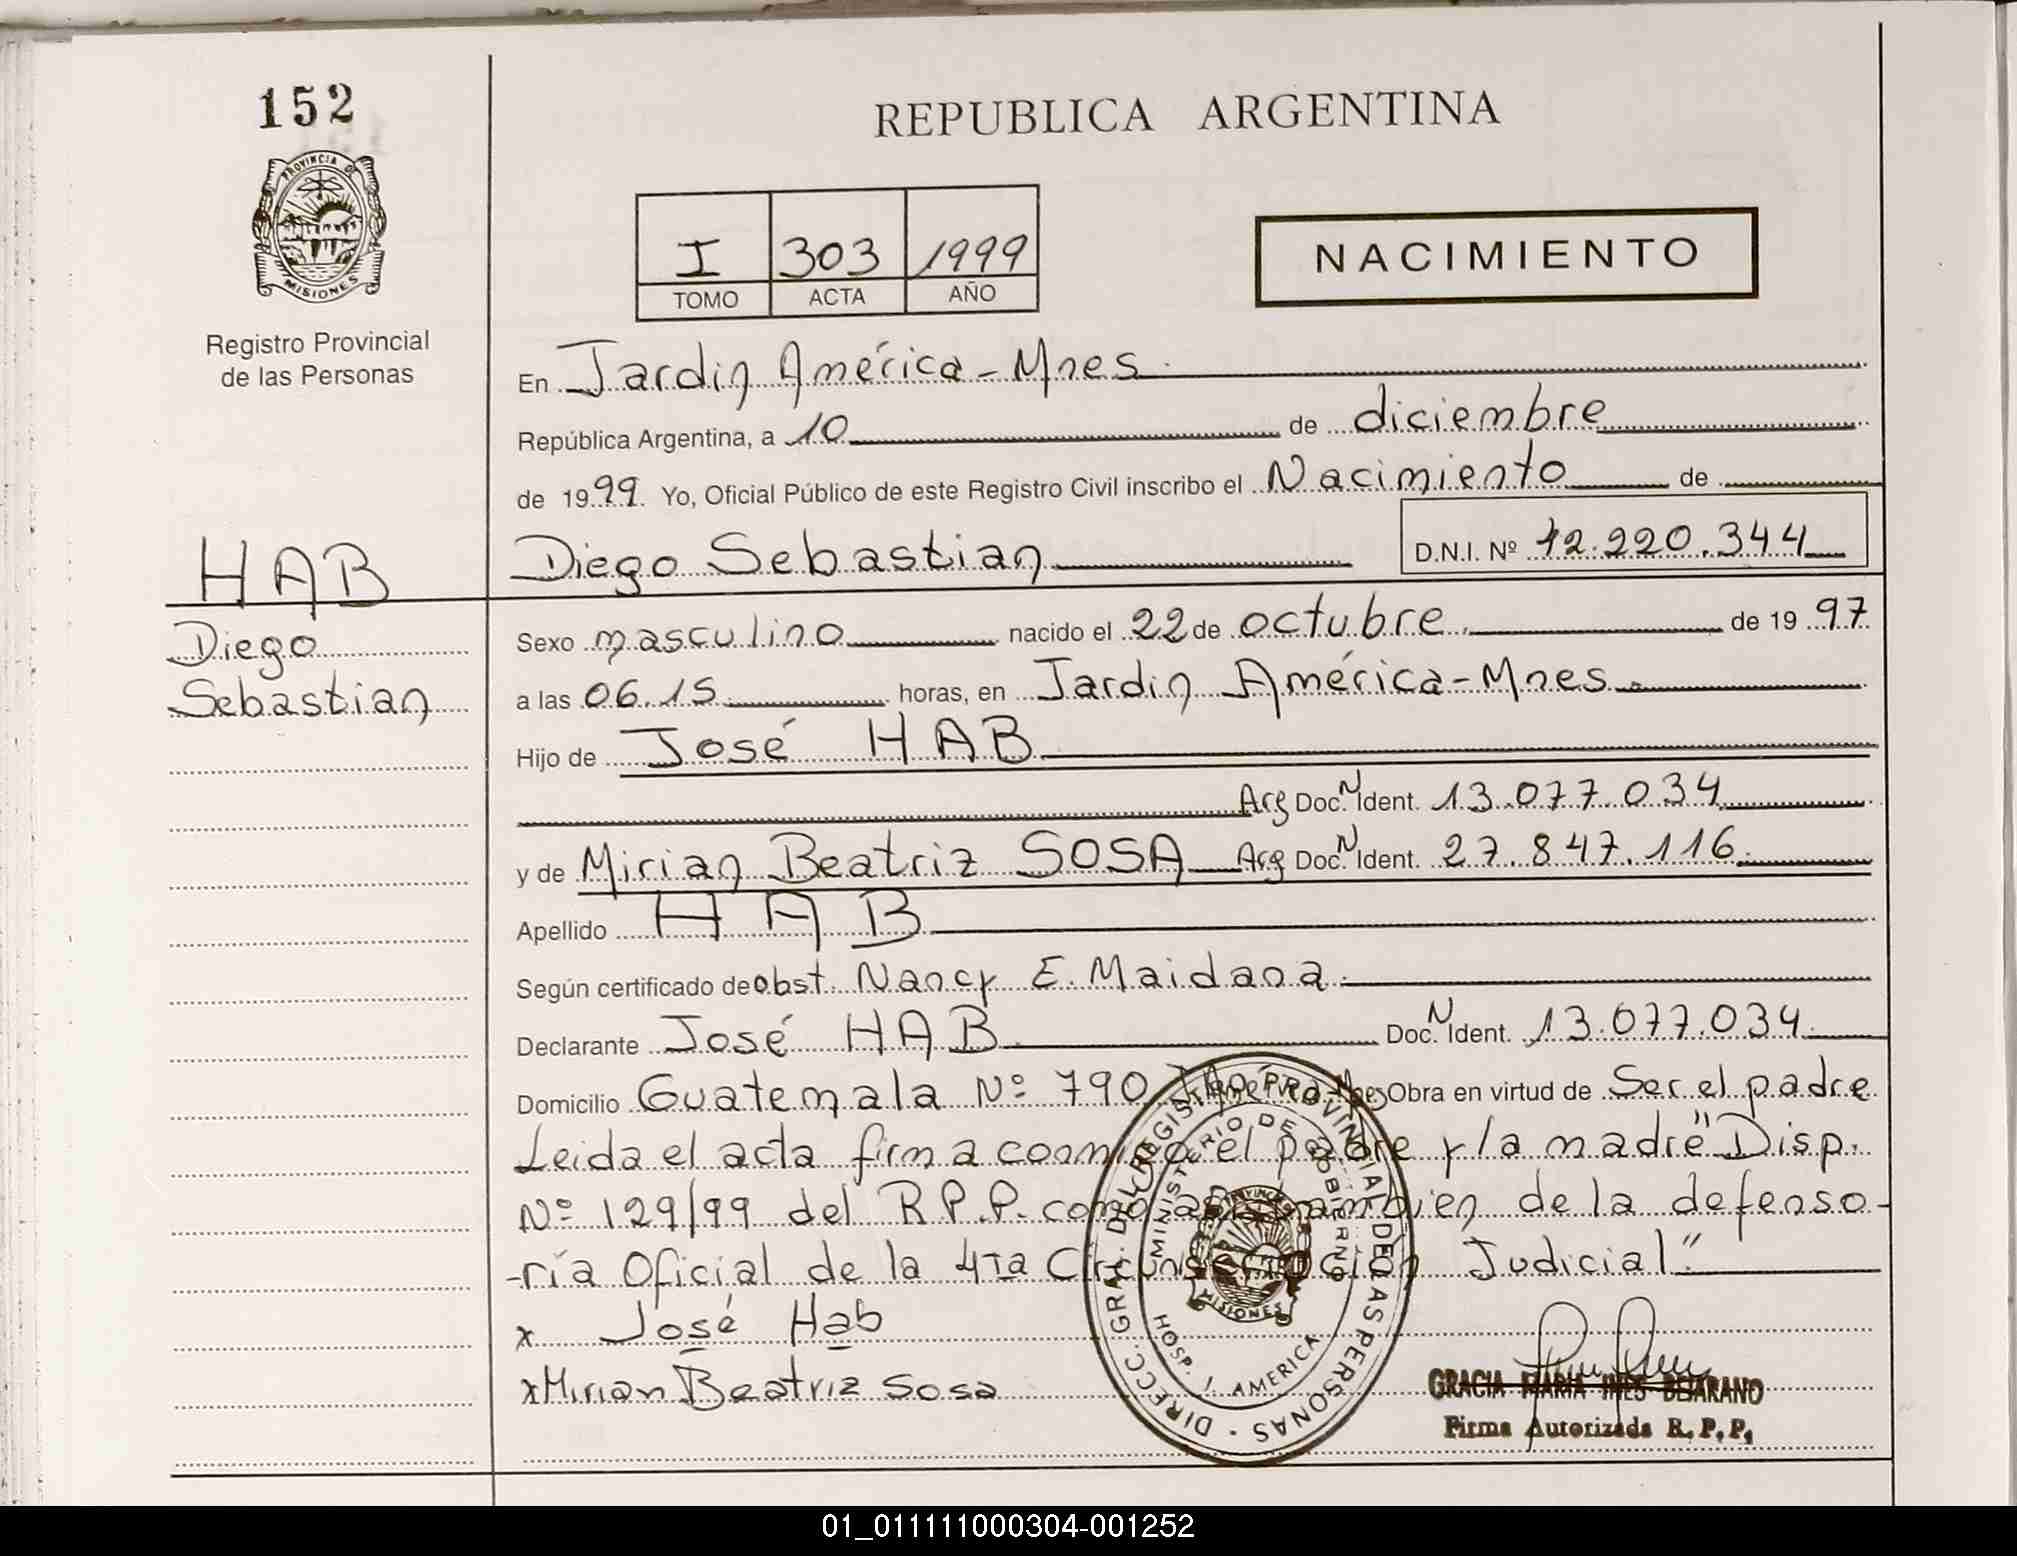 152
PROVINCIA DE
MISIONES
Registro Provincial
de las Personas
REPUBLICA ARGENTINA
I 303 1999
TOMO ACTA AÑO
NACIMIENTO
En Jardin América - Mnes.
República Argentina, a 10 de diciembre
de 1999. Yo, Oficial Público de este Registro Civil inscribo el Nacimiento de
HAB
Diego Sebastian D.N.I. Nº 42.220.344
Diego
Sebastian
Sexo masculino nacido el 22 de octubre. de 1997
a las 06.15 horas, en Jardin América - Mnes.
Hijo de José HAB
Arg Doc. N Ident. 13.077.034
y de Mirian Beatriz SOSA Arg Doc. N Ident. 27.847.116
Apellido HAB
Según certificado de obst. Nancy E. Maidana.
Declarante José HAB Doc. N Ident. 13.077.034.
Domicilio Guatemala Nº 790 Obra en virtud de Ser el padre
Leida el acta firma conmigo el padre y la madre "Disp.
Nº 129/99 del R.P.P. como asi tambien de la defenso-
-ría Oficial de la 4ta Circunscripción Judicial"
x José Hab
x Mirian Beatriz Sosa
DIRECC. GRAL. DEL REGISTRO PROVINCIAL DE LAS PERSONAS
MINISTERIO DE GOBIERNO
HOSP. J. AMERICA
MISIONES
GRACIA MARIA INES BEJARANO
Firma Autorizada R.P.P.
01_011111000304-001252